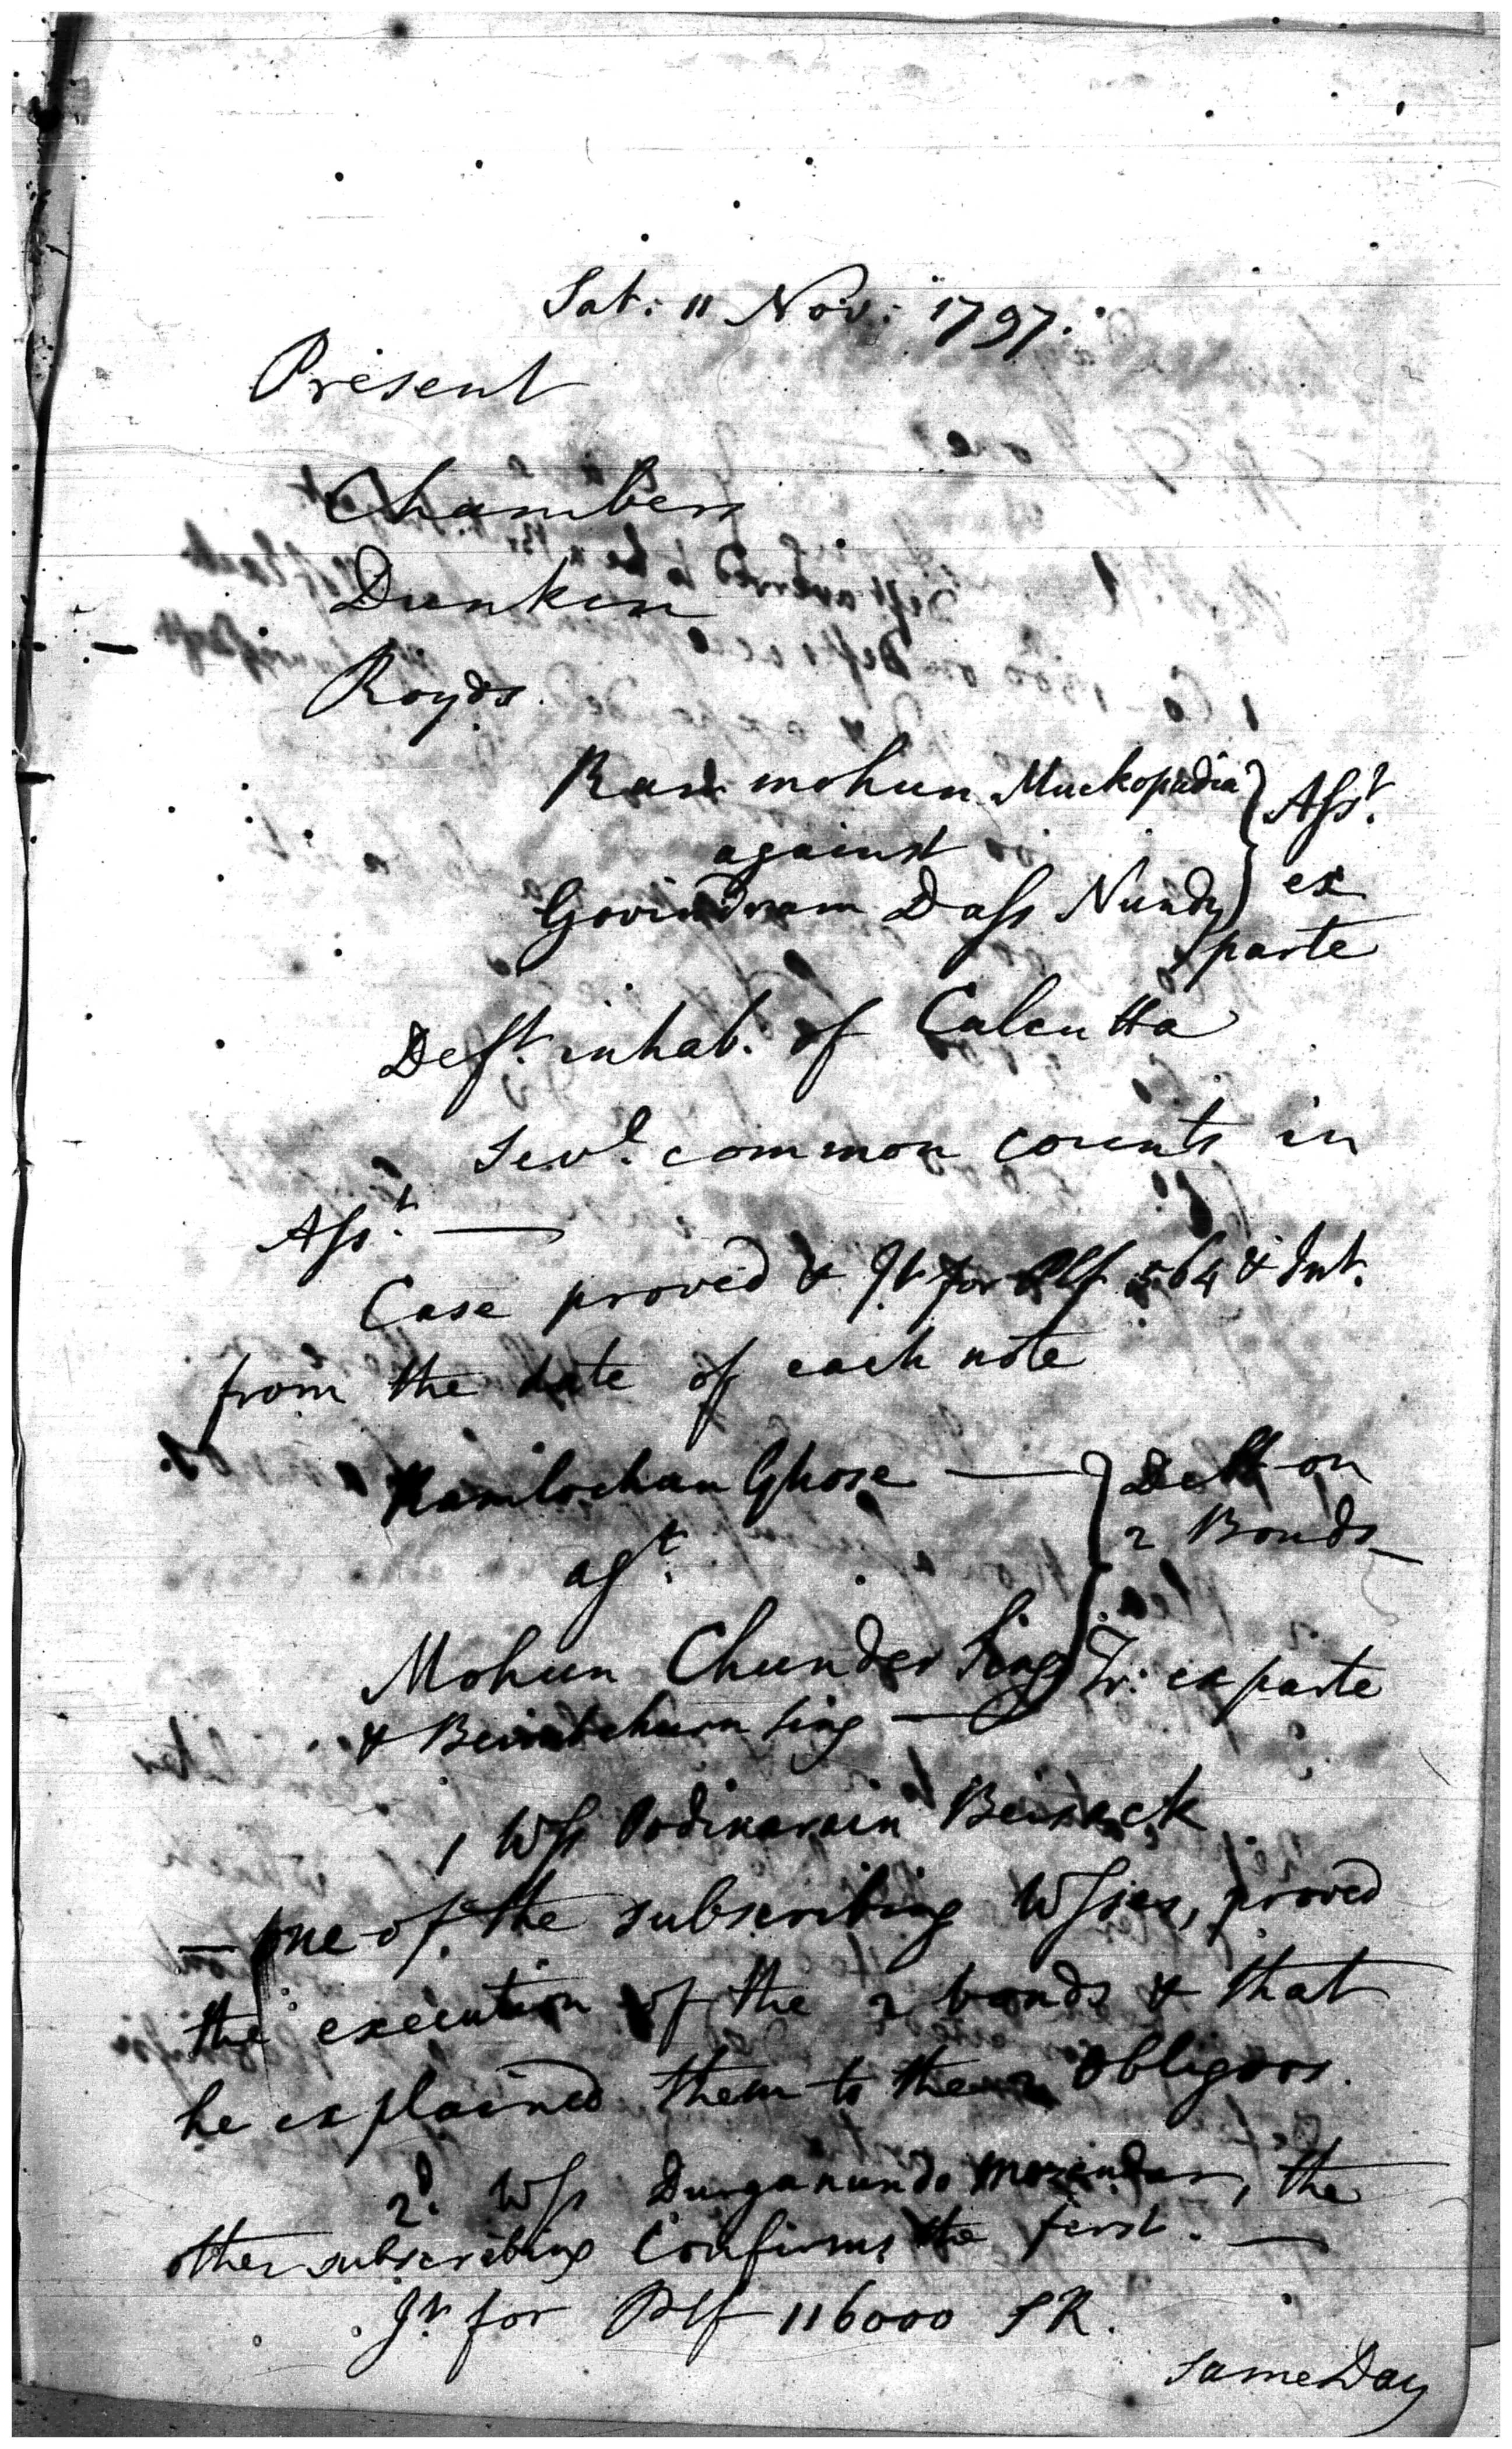 Sat: 11 Nov: 1797.
Present
Chambers
Dunkin
Royds.
Ram mohun Muckopadia } Asst.
against
Govindram Dass Nundy } ex
parte
Deft. inhab. of Calcutta
Sevl. common counts in
Asst. —
Case proved & Jt. for Plf 564 & Int.
from the date of each note
Ramlochan Ghose — } Debt on
2 Bonds —
agt.
Mohun Chunder Sing } Tr: ex parte
& churn Sing —
1 Wss Podinarain Beisack
— one of the subscribing Wsses, proved
the execution of the 2 bonds & that
he explained them to the Obligors.
2d. Wss Durganundo Mozindar, the
other subscribing Confirms the first. —
Jt. for Plf 116000 SR.
Same Day